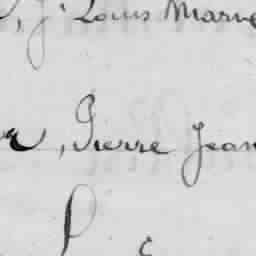 Louis Marie
, Pierre Jean